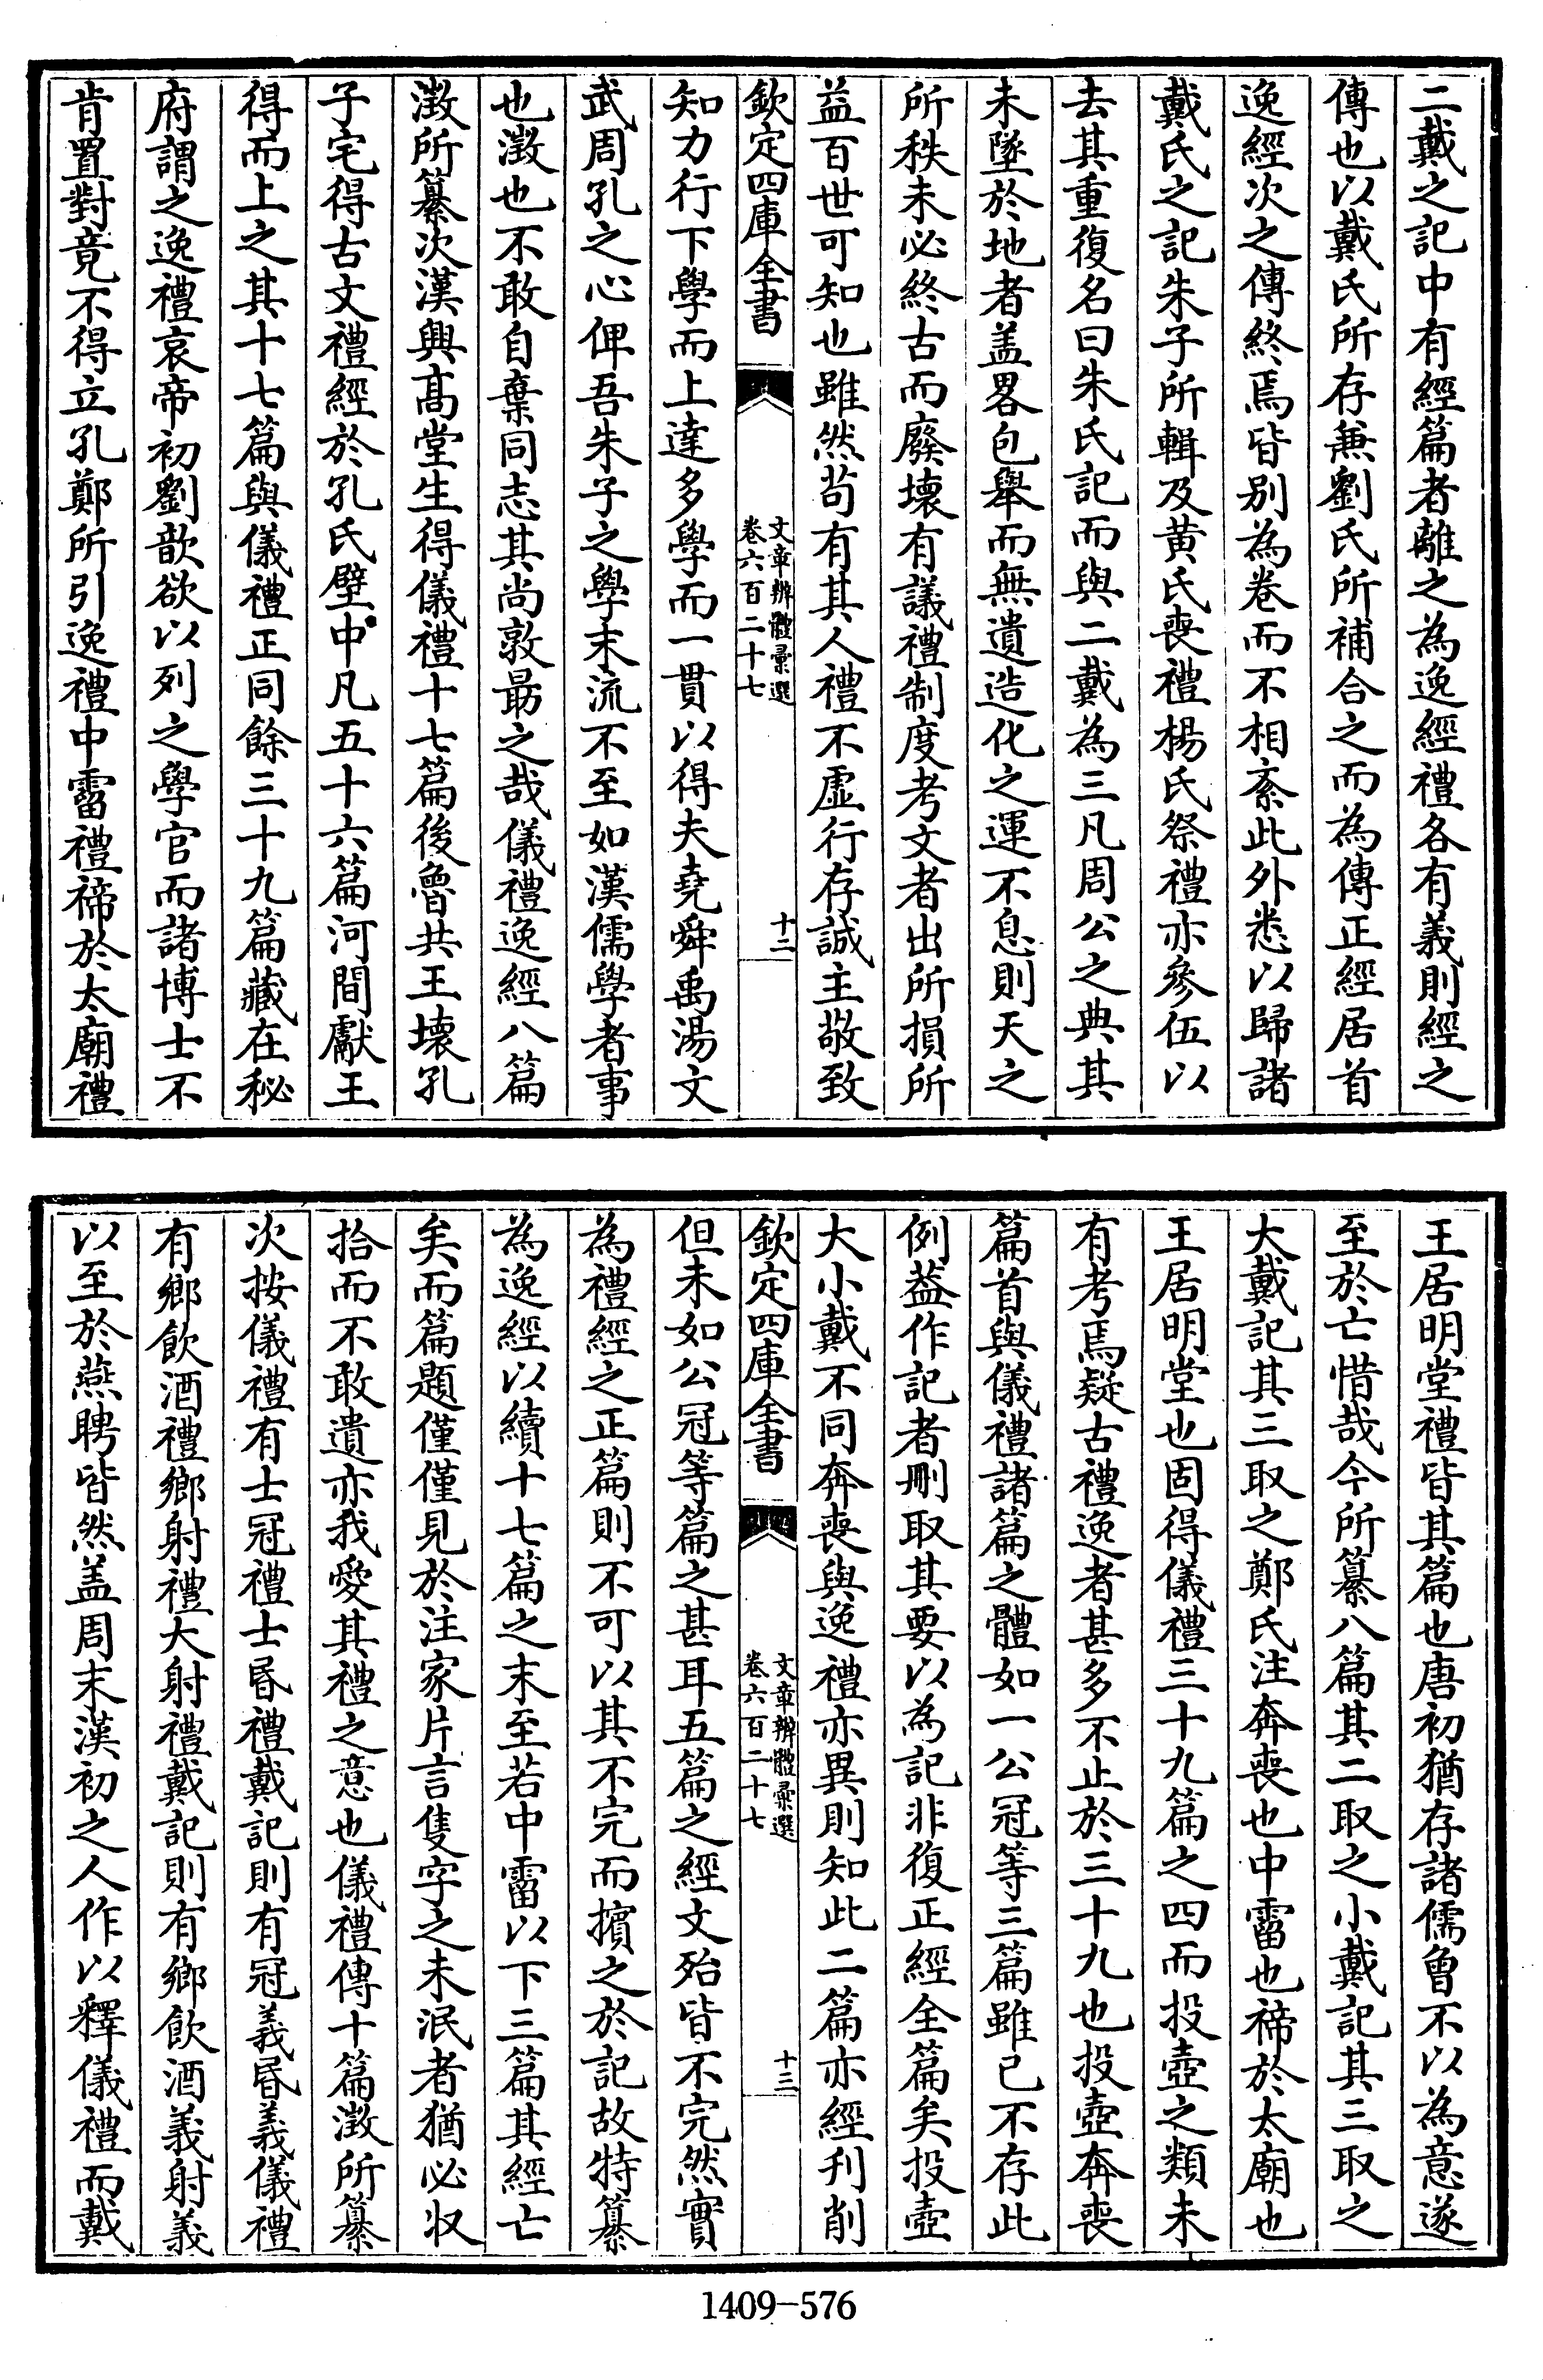 二戴之記中有經篇者離之為逸經禮各有義則經之
傳也以戴氏所存兼劉氏所補合之而為傳正經居首
逸經次之傳終焉皆别為卷而不相紊此外悉以歸諸
戴氏之記朱子所輯及黄氏喪禮楊氏祭禮亦參伍以
去其重復名曰朱氏記而與二戴為三凡周公之典其
未墜於地者盖畧包舉而無遺造化之運不息則天之
所秩未必終古而廢壞有議禮制度考文者出所損所
益百世可知也雖然苟有其人禮不虛行存誠主敬致
欽定四庫全書
文章辨體彙選
卷六百二十七
十二
知力行下學而上達多學而一貫以得夫堯舜禹湯文
武周孔之心俾吾朱子之學末流不至如漢儒學者事
也澂也不敢自棄同志其尚敦最之哉儀禮逸經八篇
澂所纂次漢興高堂生得儀禮十七篇後魯共王壞孔
子宅得古文禮經於孔氏壁中凡五十六篇河間獻王
得而上之其十七篇與儀禮正同餘三十九篇藏在秘
府謂之逸禮哀帝初劉歆欲以列之學官而諸博士不
肯置對竟不得立孔鄭所引逸禮中霤禮禘於太廟禮
王居明堂禮皆其篇也唐初猶存諸儒曾不以為意遂
至於亡惜哉今所纂八篇其二取之小戴記其三取之
大戴記其三取之鄭氏注奔喪也中霤也禘於太廟也
王居明堂也固得儀禮三十九篇之四而投壺之類未
有考焉疑古禮逸者甚多不止於三十九也投壺奔喪
篇首與儀禮諸篇之體如一公冠等三篇雖已不存此
例葢作記者刪取其要以為記非復正經全篇矣投壺
大小戴不同奔喪與逸禮亦異則知此二篇亦經刋削
欽定四庫全書
文章辨體彙選
卷六百二十七
十三
但未如公冠等篇之甚耳五篇之經文殆皆不完然實
為禮經之正篇則不可以其不完而擯之於記故特纂
為逸經以續十七篇之末至若中霤以下三篇其經亡
矣而篇題僅僅見於注家片言隻字之未泯者猶必収
拾而不敢遺亦我愛其禮之意也儀禮傳十篇澂所纂
次按儀禮有士冠禮士昏禮戴記則有冠義昏義儀禮
有鄉飲酒禮鄉射禮大射禮戴記則有鄉飲酒義射義
以至於燕聘皆然盖周末漢初之人作以釋儀禮而戴
1409-576